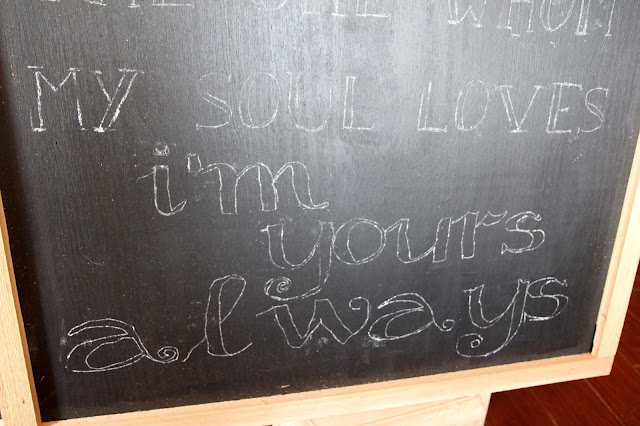 ONE WHOM
MY SOUL LOVES
i'm
yours
always